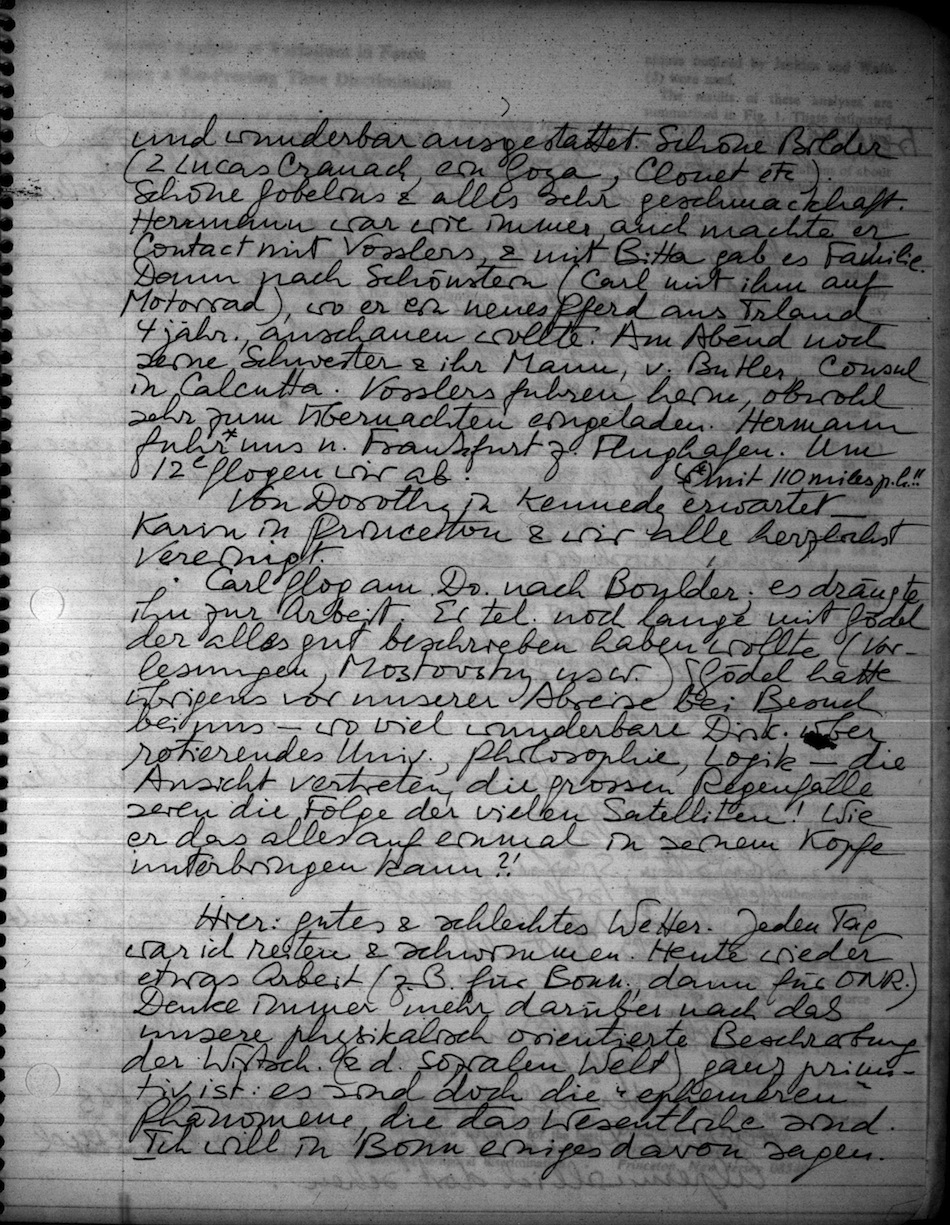 und wunderbar ausgestattet. Schöne Bilder
(2 Lucas Cranach, ein Goya, Clouet etc.).
Schöne Gobelins & alles sehr geschmackhaft.
Herrmann war wie immer, auch machte er
Contact mit Vosslers, & mit Bitta gab es Familie.
Dann nach Schönstein (Carl mit ihm auf
Motorrad), wo er ein neues Pferd aus Irland
4 jähr., anschauen wollte. Am Abend noch
seine Schwester & ihr Mann, v. Butler, Consul
in Calcutta. Vosslers fuhren heim, obwohl
sehr zum Übernachten eingeladen. Hermann
fuhr* uns n. Frankfurt z. Flughafen. Um
12 flogen wir ab.
*) mit 110 miles p.h.!!
Von Dorothy in Kennedy erwartet —
Karin in Princeton & wir alle herzlichst
vereinigt.
Carl flog am Do. nach Boulder; es drängte
ihn zur Arbeit. Er tel. noch lange mit Gödel
der alles gut beschrieben haben wollte (Vor-
lesungen, Mostovsky usw.) Gödel hatte
übrigens vor unserer Abreise bei Besuch
bei uns — wo viel wunderbare Disk. über
rotierendes Univ., Philosophie, Logik — die
Ansicht vertreten, die grossen Regenfälle
seien die Folge der vielen Satelliten! Wie
er das alles auf einmal in seinem Kopfe
unterbringen kann?!
Hier: gutes & schlechtes Wetter. Jeden Tag
war ich reiten & schwimmen. Heute wieder
etwas Arbeit (z.B. für Bonn, dann für ONR.)
Denke immer mehr darüber nach das
unsere physikalisch orientierte Beschreibung
der Wirtsch. (& d. sozialen Welt) ganz primi-
tiv ist: es sind doch die "ephemeren"
Phänomene, die das Wesentliche sind.
Ich will in Bonn einiges davon sagen.